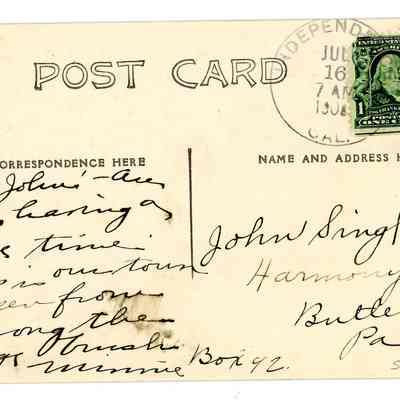 POST CARD
INDEPENDE
JUL
16
7 AM
190
CAL.
1
CORRESPONDENCE HERE
NAME AND ADDRESS H
John's - Are
having a
time
is our town
from
ong the
Brush
Minnie
Box 92.
John Singl
Harmony
Butle
Pa